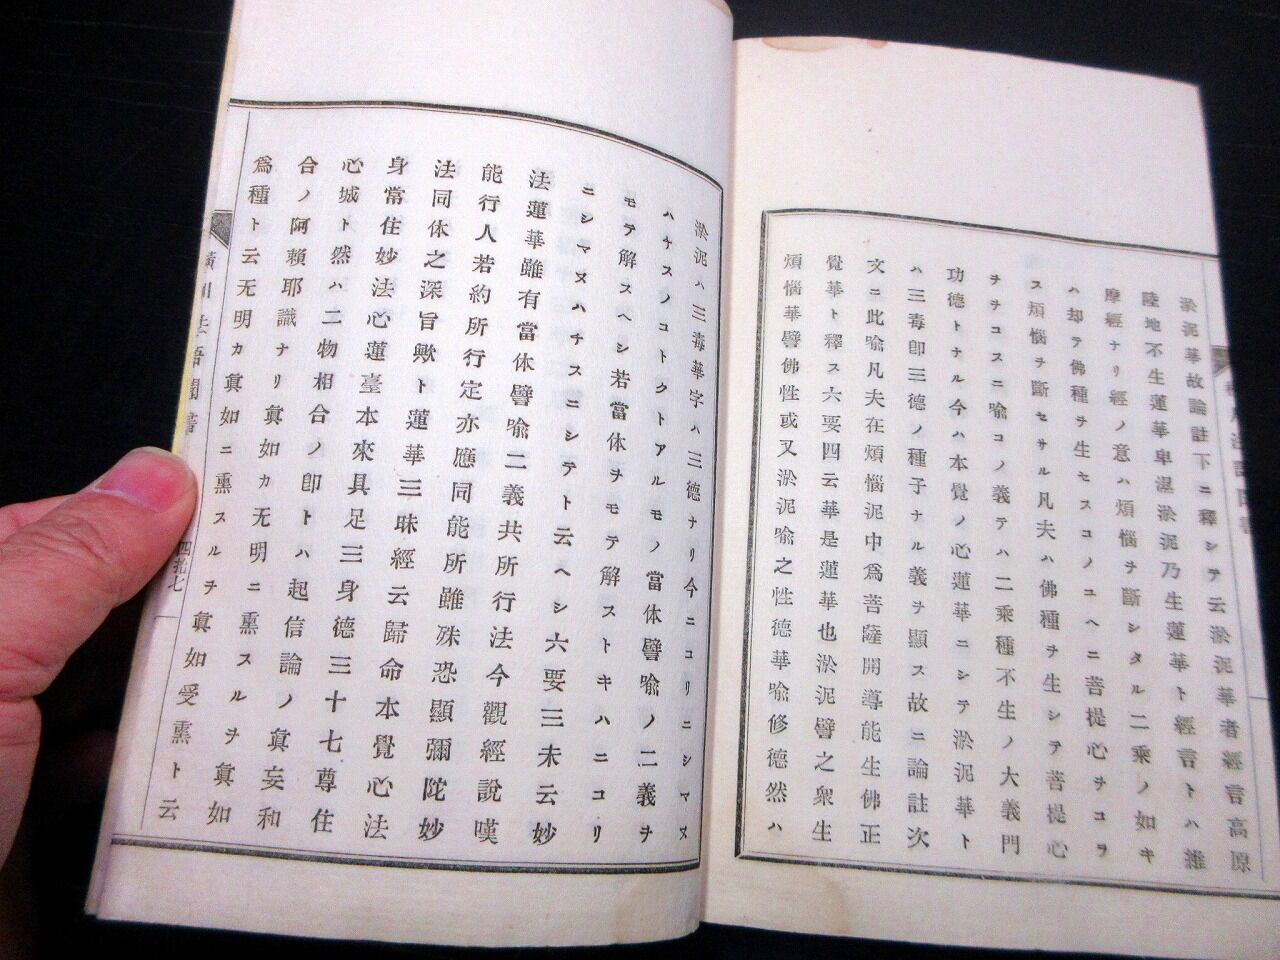 淤泥華故論註下ニ釋シテ云淤泥華者經言高原
陸地不生蓮華卑濕淤泥乃生蓮華ト經言トハ維
摩經ナリ經ノ意ハ煩惱ヲ斷シタル二乘ノ如キ
ハ却テ佛種ヲ生セスコノユヘニ菩提心ヲコラ
ス煩惱ヲ斷セサル凡夫ハ佛種ヲ生シテ菩提心
ヲヲコスニ喩コノ義テハ二乘種不生ノ大義門
功德トナル今ハ本覺ノ心蓮華ニシテ淤泥華ト
ハ三毒卽三德ノ種子ナル義ヲ顯ス故ニ論註次
文ニ此喩凡夫在煩惱泥中爲菩薩開導能生佛正
覺華ト釋ス六要四云華是蓮華也淤泥譬之衆生
煩惱華譬佛性或又淤泥喩之性德華喩修德然ハ
淤泥ハ三毒華字ハ三德ナリ今ニコリニシマヌ
ハケスノコトクトアルモノ當体譬喩ノ二義ヲ
モテ解スヘシ若當体ヲモテ解ストキハニコリ
ニシマヌハチスニシテト云ヘシ六要三末云妙
法蓮華雖有當体譬喩二義共所行法今觀經說嘆
能行人若約所行定亦應同能所雖殊恐顯彌陀妙
法同体之深旨歟ト蓮華三昧經云歸命本覺心法
身常住妙法心蓮臺本來具足三身德三十七尊住
心城ト然ハ二物相合ノ卽トハ起信論ノ眞妄和
合ノ阿賴耶識ナリ眞如カ无明ニ熏スルヲ眞如
爲種ト云无明カ眞如ニ熏スルヲ眞如受熏ト云
四拾七